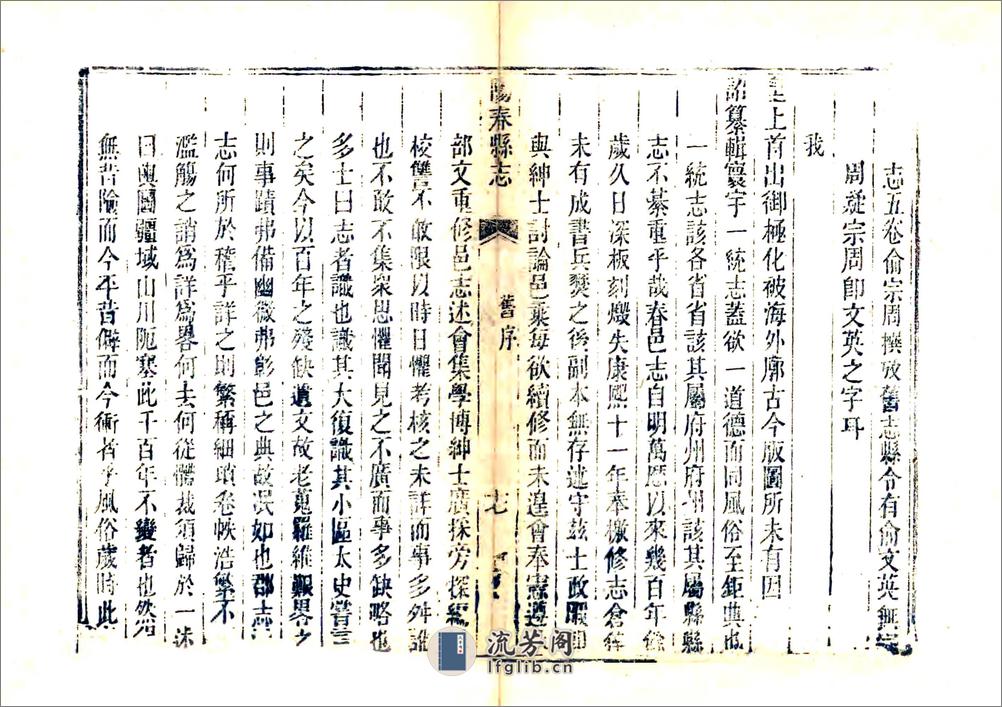 志五卷俞宗周撰攷舊志縣令有俞文英無宗
周疑宗周卽文英之字耳
我
皇上首出御極化被海外廓古今版圖所未有因
詔纂輯寰宇一統志蓋欲一道德而同風俗至鉅典也
一統志該各省省該其屬府州府州該其屬縣縣
志不綦重乎哉春邑志自明萬厯以來幾百年餘
歲久日深板刻燬失康熙十一年奉檄修志倉猝
未有成書兵燹之後副本無存述守茲土政暇卽
與紳士討論邑乘每欲續修而未遑會奉憲遵
部文重修邑志述會集學博紳士廣採旁探編
校讐不敢限以時日懼考核之未詳而事多舛譌
也不敢不集衆思懼聞見之不廣而事多缺略也
多士曰志者識也識其大復識其小區太史嘗言
之矣今以百年之殘缺遺文故老蒐羅維艱畧之
則事蹟弗備幽微弗彰邑之典故泯如也郡志
志何所於稽乎詳之則繁稱細瑣卷帙浩繁不
濫觴之誚為詳為畧何去何從體裁須歸於一
曰輿圖疆域山川阨塞此千百年不變者也然
無昔險而今平昔僻而今衝者乎風俗歲時此
陽春縣志
舊序
十七
流芳阁
lfglib.cn